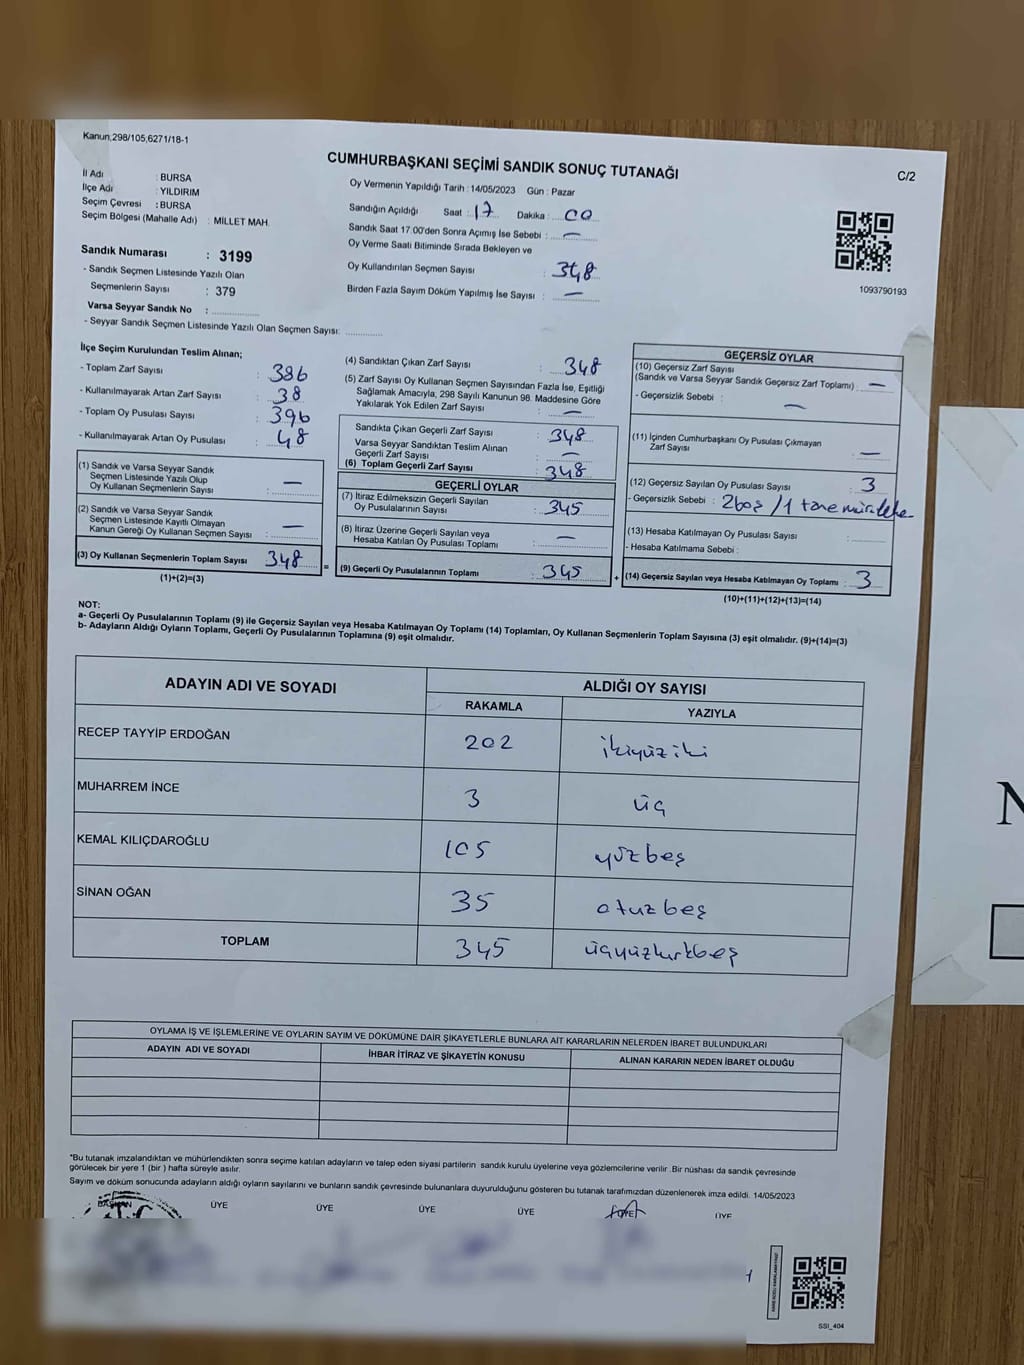 Kanun,298/105,6271/18-1
CUMHURBAŞKANI SEÇİMİ SANDIK SONUÇ TUTANAĞI
C/2
İl Adı : BURSA
İlçe Adı : YILDIRIM
Seçim Çevresi : BURSA
Seçim Bölgesi (Mahalle Adı) : MİLLET MAH.
Sandık Numarası : 3199
- Sandık Seçmen Listesinde Yazılı Olan
Seçmenlerin Sayısı : 379
Varsa Seyyar Sandık No :
- Seyyar Sandık Seçmen Listesinde Yazılı Olan Seçmen Sayısı:
Oy Vermenin Yapıldığı Tarih : 14/05/2023 Gün : Pazar
Sandığın Açıldığı Saat : 17 Dakika : 00
Sandık Saat 17.00'den Sonra Açımış İse Sebebi : —
Oy Verme Saati Bitiminde Sırada Bekleyen ve
Oy Kullandırılan Seçmen Sayısı : 348
Birden Fazla Sayım Döküm Yapılmış İse Sayısı : —
1093790193
İlçe Seçim Kurulundan Teslim Alınan;
- Toplam Zarf Sayısı : 386
- Kullanılmayarak Artan Zarf Sayısı : 38
- Toplam Oy Pusulası Sayısı : 396
- Kullanılmayarak Artan Oy Pusulası : 48
(1) Sandık ve Varsa Seyyar Sandık
Seçmen Listesinde Yazılı Olup
Oy Kullanan Seçmenlerin Sayısı : —
(2) Sandık ve Varsa Seyyar Sandık
Seçmen Listesinde Kayıtlı Olmayan
Kanun Gereği Oy Kullanan Seçmen Sayısı : —
(3) Oy Kullanan Seçmenlerin Toplam Sayısı : 348
(1)+(2)=(3)
=
(4) Sandıktan Çıkan Zarf Sayısı : 348
(5) Zarf Sayısı Oy Kullanan Seçmen Sayısından Fazla İse, Eşitliği
Sağlamak Amacıyla, 298 Sayılı Kanunun 98. Maddesine Göre
Yakılarak Yok Edilen Zarf Sayısı : —
Sandıkta Çıkan Geçerli Zarf Sayısı : 348
Varsa Seyyar Sandıktan Teslim Alınan
Geçerli Zarf Sayısı : —
(6) Toplam Geçerli Zarf Sayısı : 348
GEÇERLİ OYLAR
(7) İtiraz Edilmeksizin Geçerli Sayılan
Oy Pusulalarının Sayısı : 345
(8) İtiraz Üzerine Geçerli Sayılan veya
Hesaba Katılan Oy Pusulası Toplamı : —
(9) Geçerli Oy Pusulalarının Toplamı : 345
+
GEÇERSİZ OYLAR
(10) Geçersiz Zarf Sayısı
(Sandık ve Varsa Seyyar Sandık Geçersiz Zarf Toplamı) : —
- Geçersizlik Sebebi : —
(11) İçinden Cumhurbaşkanı Oy Pusulası Çıkmayan
Zarf Sayısı : —
(12) Geçersiz Sayılan Oy Pusulası Sayısı : 3
- Geçersizlik Sebebi : 2boş /1 tane
(13) Hesaba Katılmayan Oy Pusulası Sayısı :
- Hesaba Katılmama Sebebi :
(14) Geçersiz Sayılan veya Hesaba Katılmayan Oy Toplamı : 3
(10)+(11)+(12)+(13)=(14)
NOT:
a- Geçerli Oy Pusulalarının Toplamı (9) ile Geçersiz Sayılan veya Hesaba Katılmayan Oy Toplamı (14) Toplamları, Oy Kullanan Seçmenlerin Toplam Sayısına (3) eşit olmalıdır. (9)+(14)=(3)
b- Adayların Aldığı Oyların Toplamı, Geçerli Oy Pusulalarının Toplamına (9) eşit olmalıdır.
ADAYIN ADI VE SOYADI ALDIĞI OY SAYISI
RAKAMLA YAZIYLA
RECEP TAYYİP ERDOĞAN 202 ikiyüziki
MUHARREM İNCE 3 üç
KEMAL KILIÇDAROĞLU 105 yüzbeş
SİNAN OĞAN 35 otuzbeş
TOPLAM 345 üçyüzkırkbeş
OYLAMA İŞ VE İŞLEMLERİNE VE OYLARIN SAYIM VE DÖKÜMÜNE DAİR ŞİKAYETLERLE BUNLARA AİT KARARLARIN NELERDEN İBARET BULUNDUKLARI
ADAYIN ADI VE SOYADI İHBAR İTİRAZ VE ŞİKAYETİN KONUSU ALINAN KARARIN NEDEN İBARET OLDUĞU
*Bu tutanak imzalandıktan ve mühürlendikten sonra seçime katılan adayların ve talep eden siyasi partilerin sandık kurulu üyelerine veya gözlemcilerine verilir .Bir nüshası da sandık çevresinde
görülecek bir yere 1 (bir ) hafta süreyle asılır.
Sayım ve döküm sonucunda adayların aldığı oyların sayılarını ve bunların sandık çevresinde bulunanlara duyurulduğunu gösteren bu tutanak tarafımızdan düzenlenerek imza edildi. 14/05/2023
BAŞKAN ÜYE ÜYE ÜYE ÜYE ÜYE ÜYE
SSI_404
N